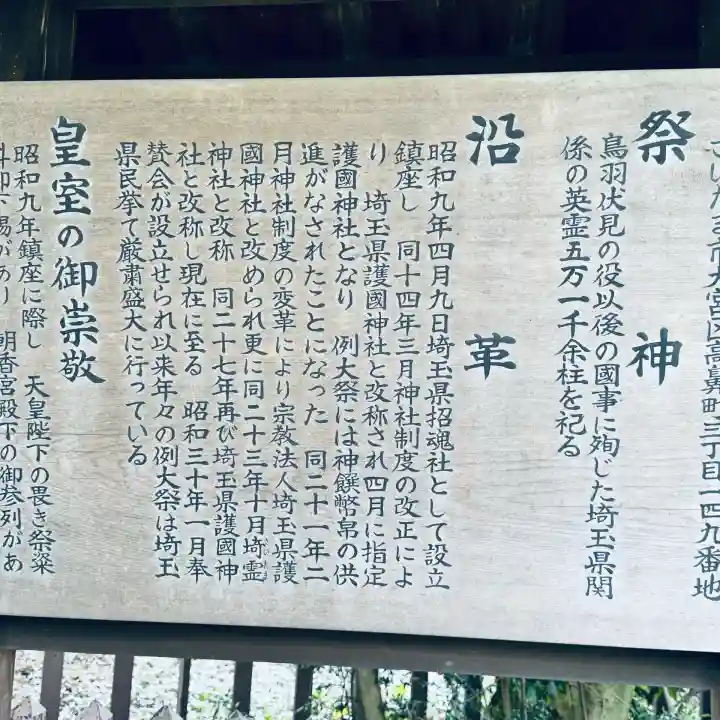 さいたま市大宮区高鼻町三丁目一四九番地
祭神
鳥羽伏見の役以後の國事に殉じた埼玉県関
係の英霊五万一千余柱を祀る
沿革
昭和九年四月九日埼玉県招魂社として設立
鎮座し 同十四年三月神社制度の改正によ
り 埼玉県護國神社と改称され四月に指定
護國神社となり 例大祭には神饌幣帛の供
進がなされたことになった 同二十一年二
月神社制度の変革により宗教法人埼玉県護
國神社と改められ更に同二十三年十月埼霊
神社と改称 同二十七年再び埼玉県護國神
社と改称し現在に至る 昭和三十年一月奉
賛会が設立せられ以来年々の例大祭は埼玉
県民挙て厳粛盛大に行っている
皇室の御崇敬
昭和九年鎮座に際し 天皇陛下の畏き祭粢
料御下賜があり 朝香宮殿下の御参列があ